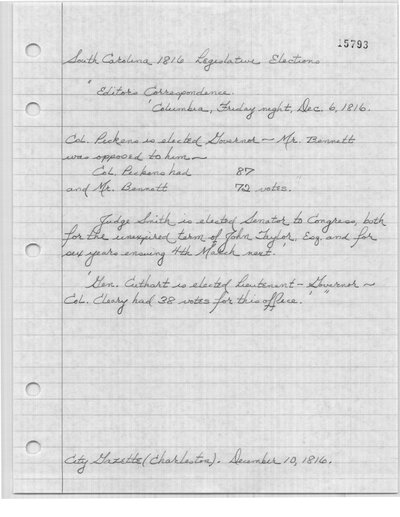 15793
South Carolina 1816 Legislative Elections
" Editors Correspondence.
'Columbia, Friday night, Dec. 6, 1816.
Col. Pickens is elected Governor ~ Mr. Bennett
was opposed to him ~
Col. Pickens had 87
and Mr. Bennett 72 votes.
Judge Smith is elected Senator to Congress, both
for the unexpired term of John Taylor, Esq. and for
six years ensuing 4th March next.
'Gen. Cuthart is elected Lieutenant-Governor ~
Col. Cleary had 38 votes for this office.' "
City Gazette (Charleston). December 10, 1816.